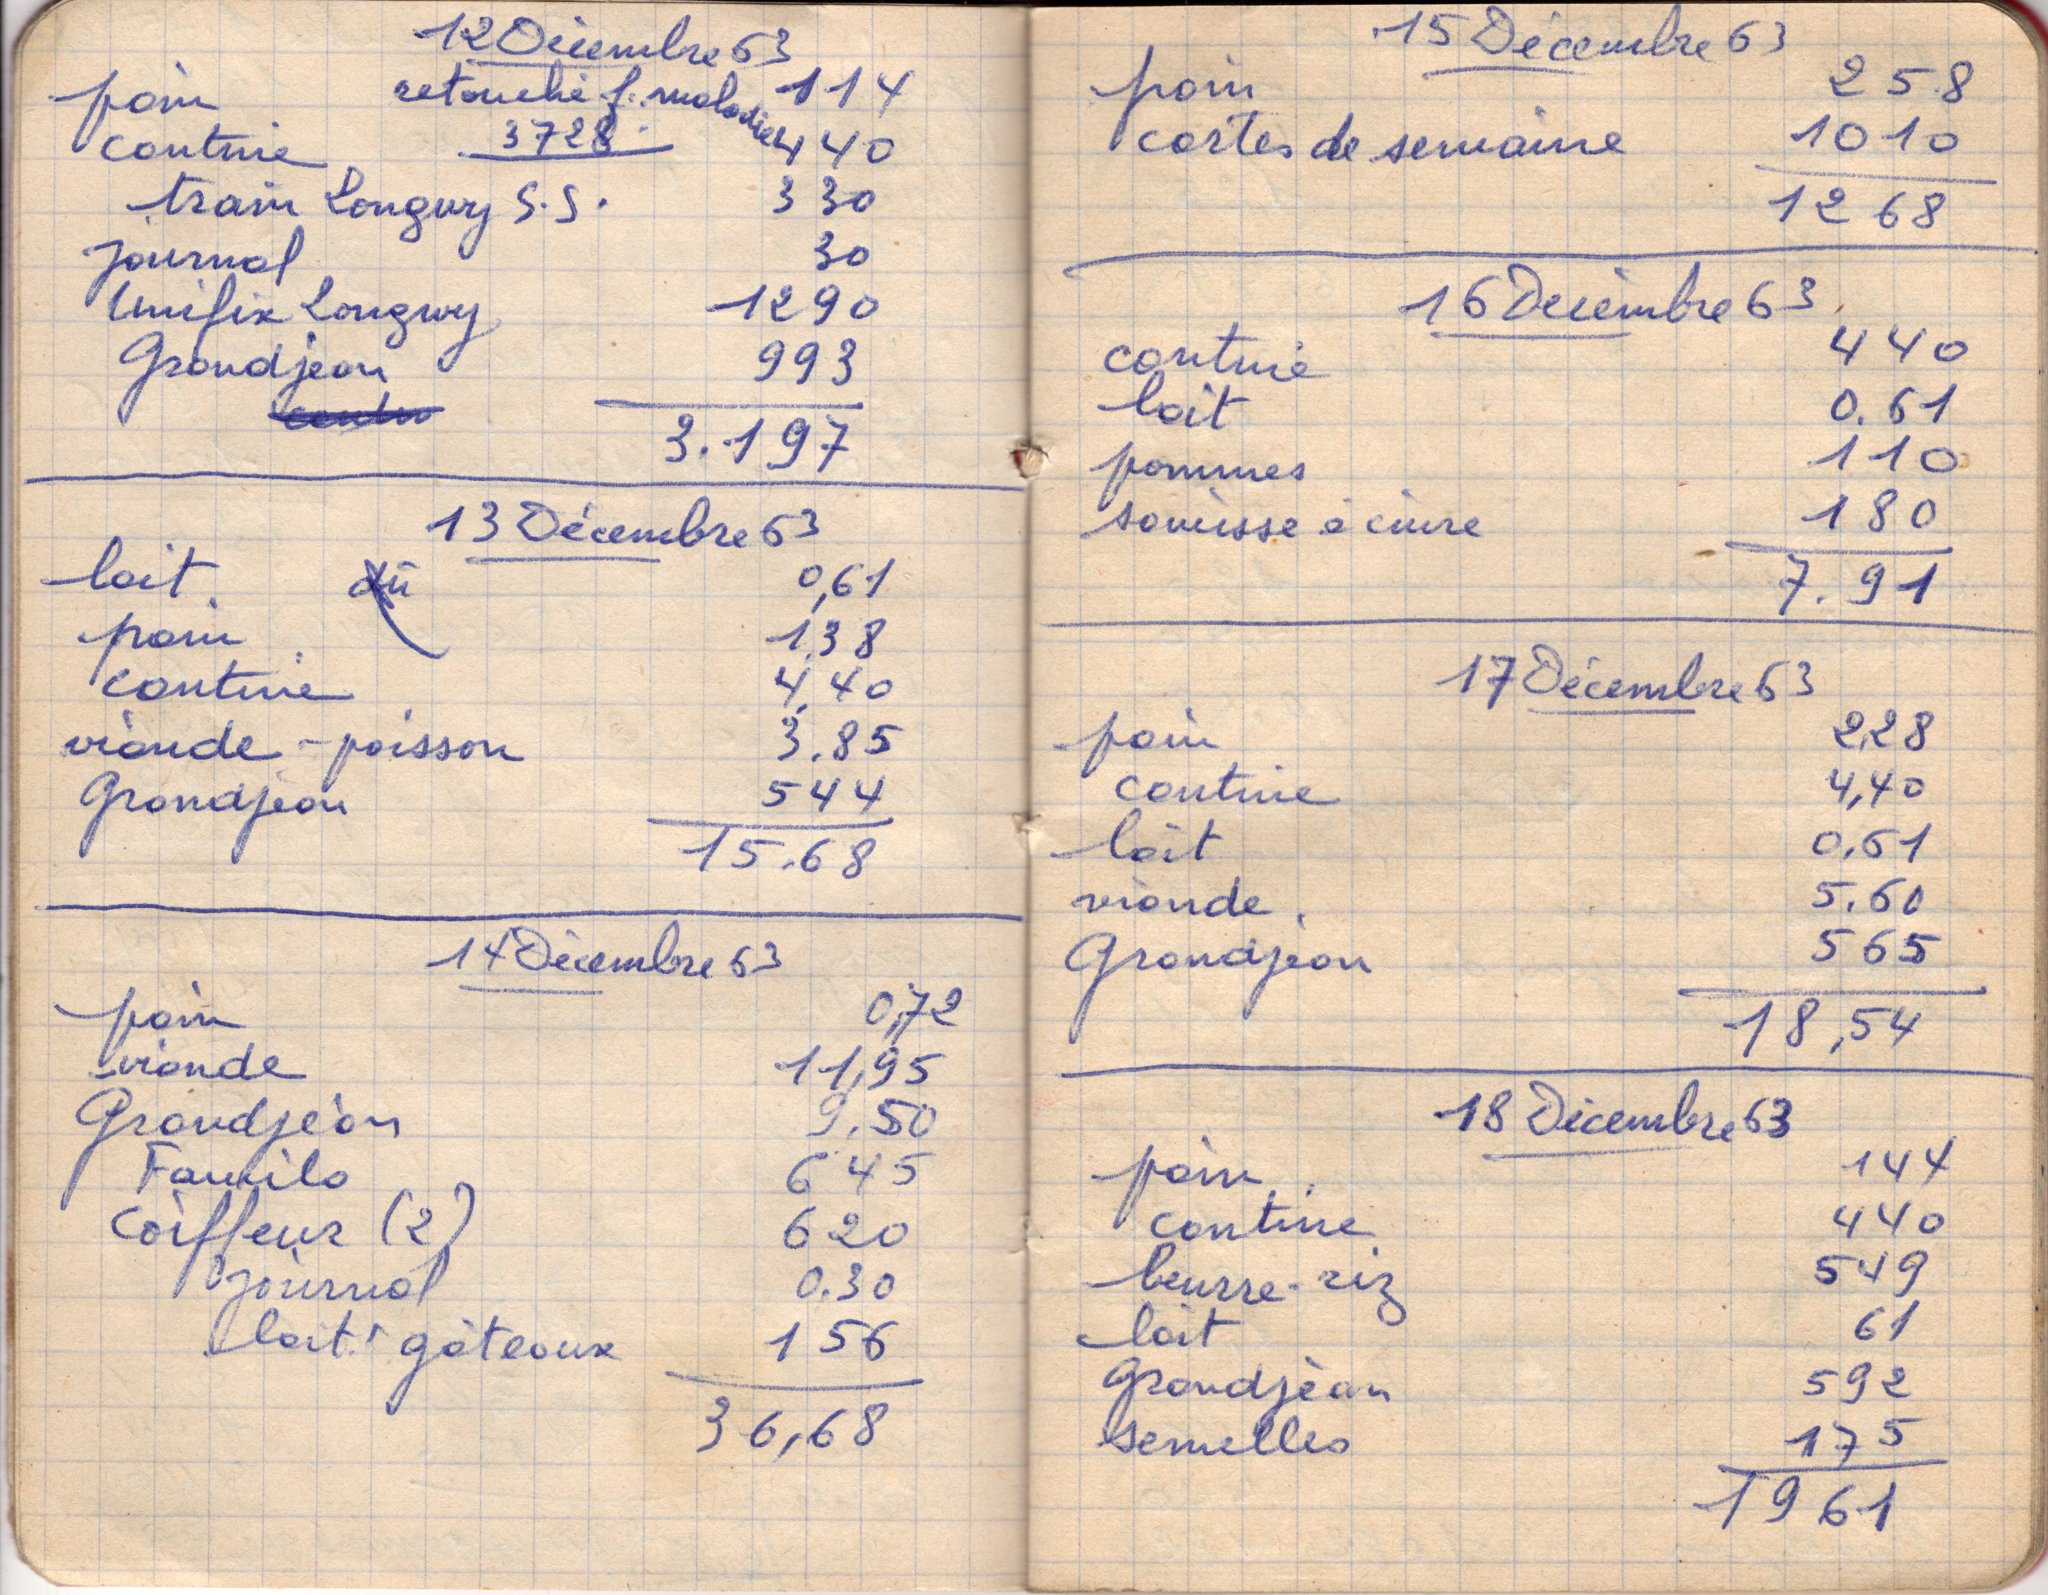 12 Décembre 63
pain retouché f. maladie 114
cantine 3728 440
train Longwy S.S. 330
journal 30
Unifix Longwy 1290
Grandjean 993
3.197
13 Décembre 63
lait dû 0,61
pain 1,38
cantine 4,40
viande - poisson 3.85
Grandjean 544
15.68
14 Décembre 63
pain 0,72
viande 11,95
Grandjean 9.50
Familo 6 45
Coiffeur (2) 620
journal 0.30
lait gâteaux 156
36,68
15 Décembre 63
pain 258
cartes de semaine 1010
1268
16 Décembre 63
cantine 440
lait 0.61
pommes 110
saucisse à cuire 180
7.91
17 Décembre 63
pain 2,28
cantine 4,40
lait 0.61
viande 5.60
Grandjean 565
18,54
18 Décembre 63
pain 144
cantine 440
beurre - riz 549
lait 61
Grandjean 592
semelles 175
1961